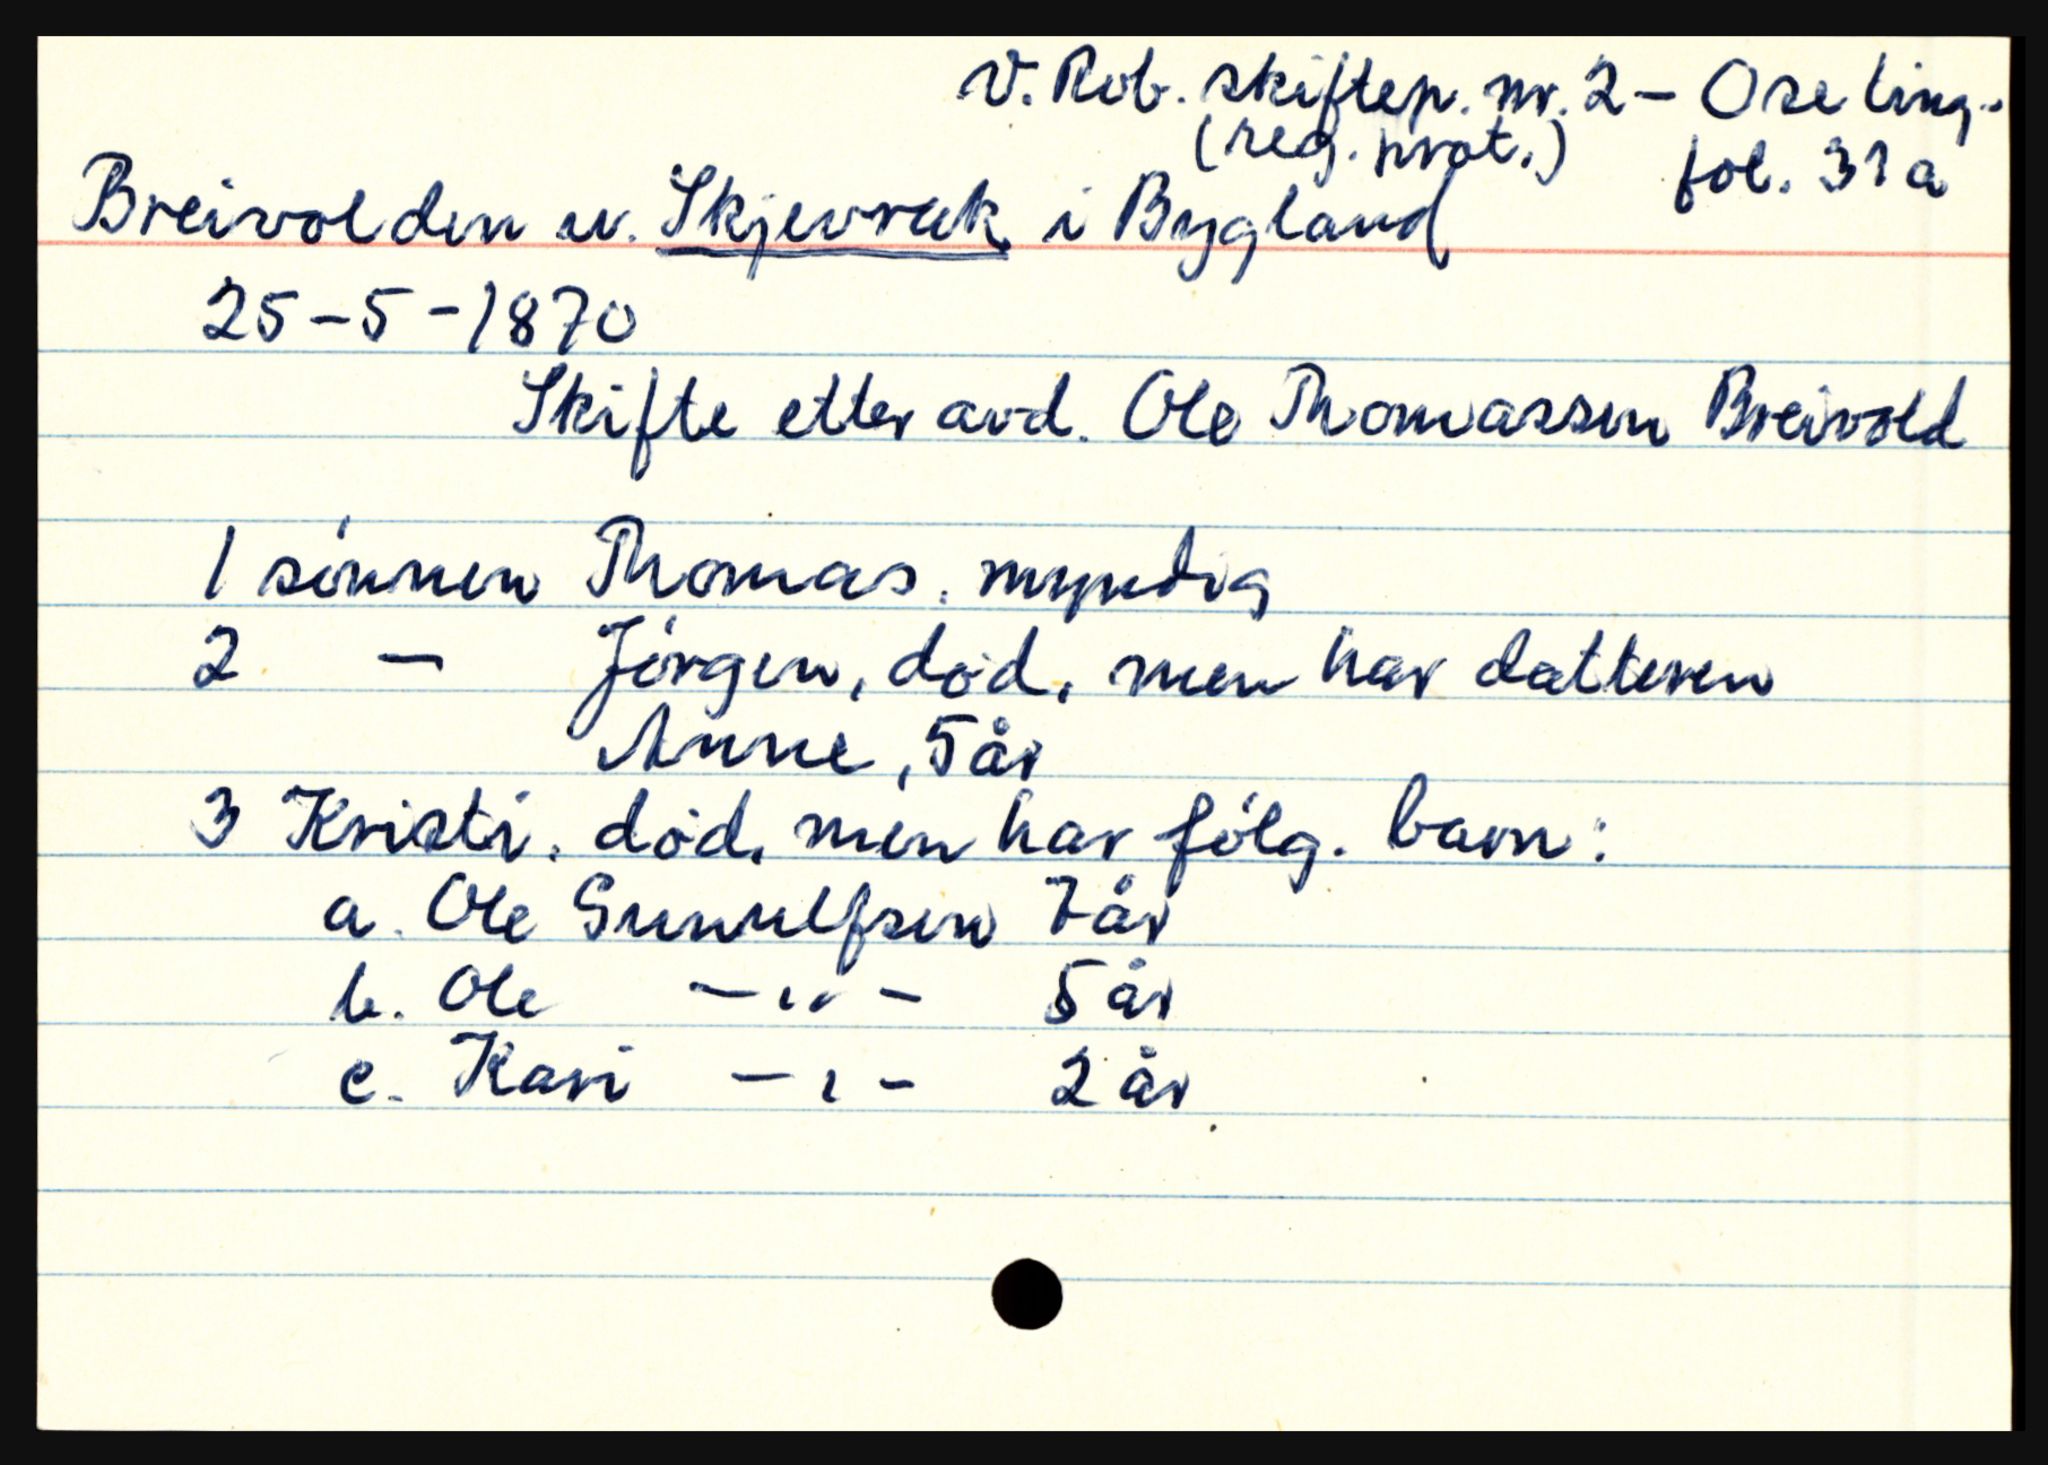 V. Rob. skiftep. nr. 2 - Ose ting.
(reg. prot.) fol. 31a
Breivolden u. Skjevrak i Bygland
25-5-1870
Skifte etter avd. Ole Thomassen Breivold
1 sønnen Thomas. myndig
2 — Jørgen, død, men har datteren
Anne, 5 år
3 Kristi. død, men har følg. barn:
a. Ole Gunulfsen 7 år
b. Ole -"- 5 år
c. Kari -"- 2 år